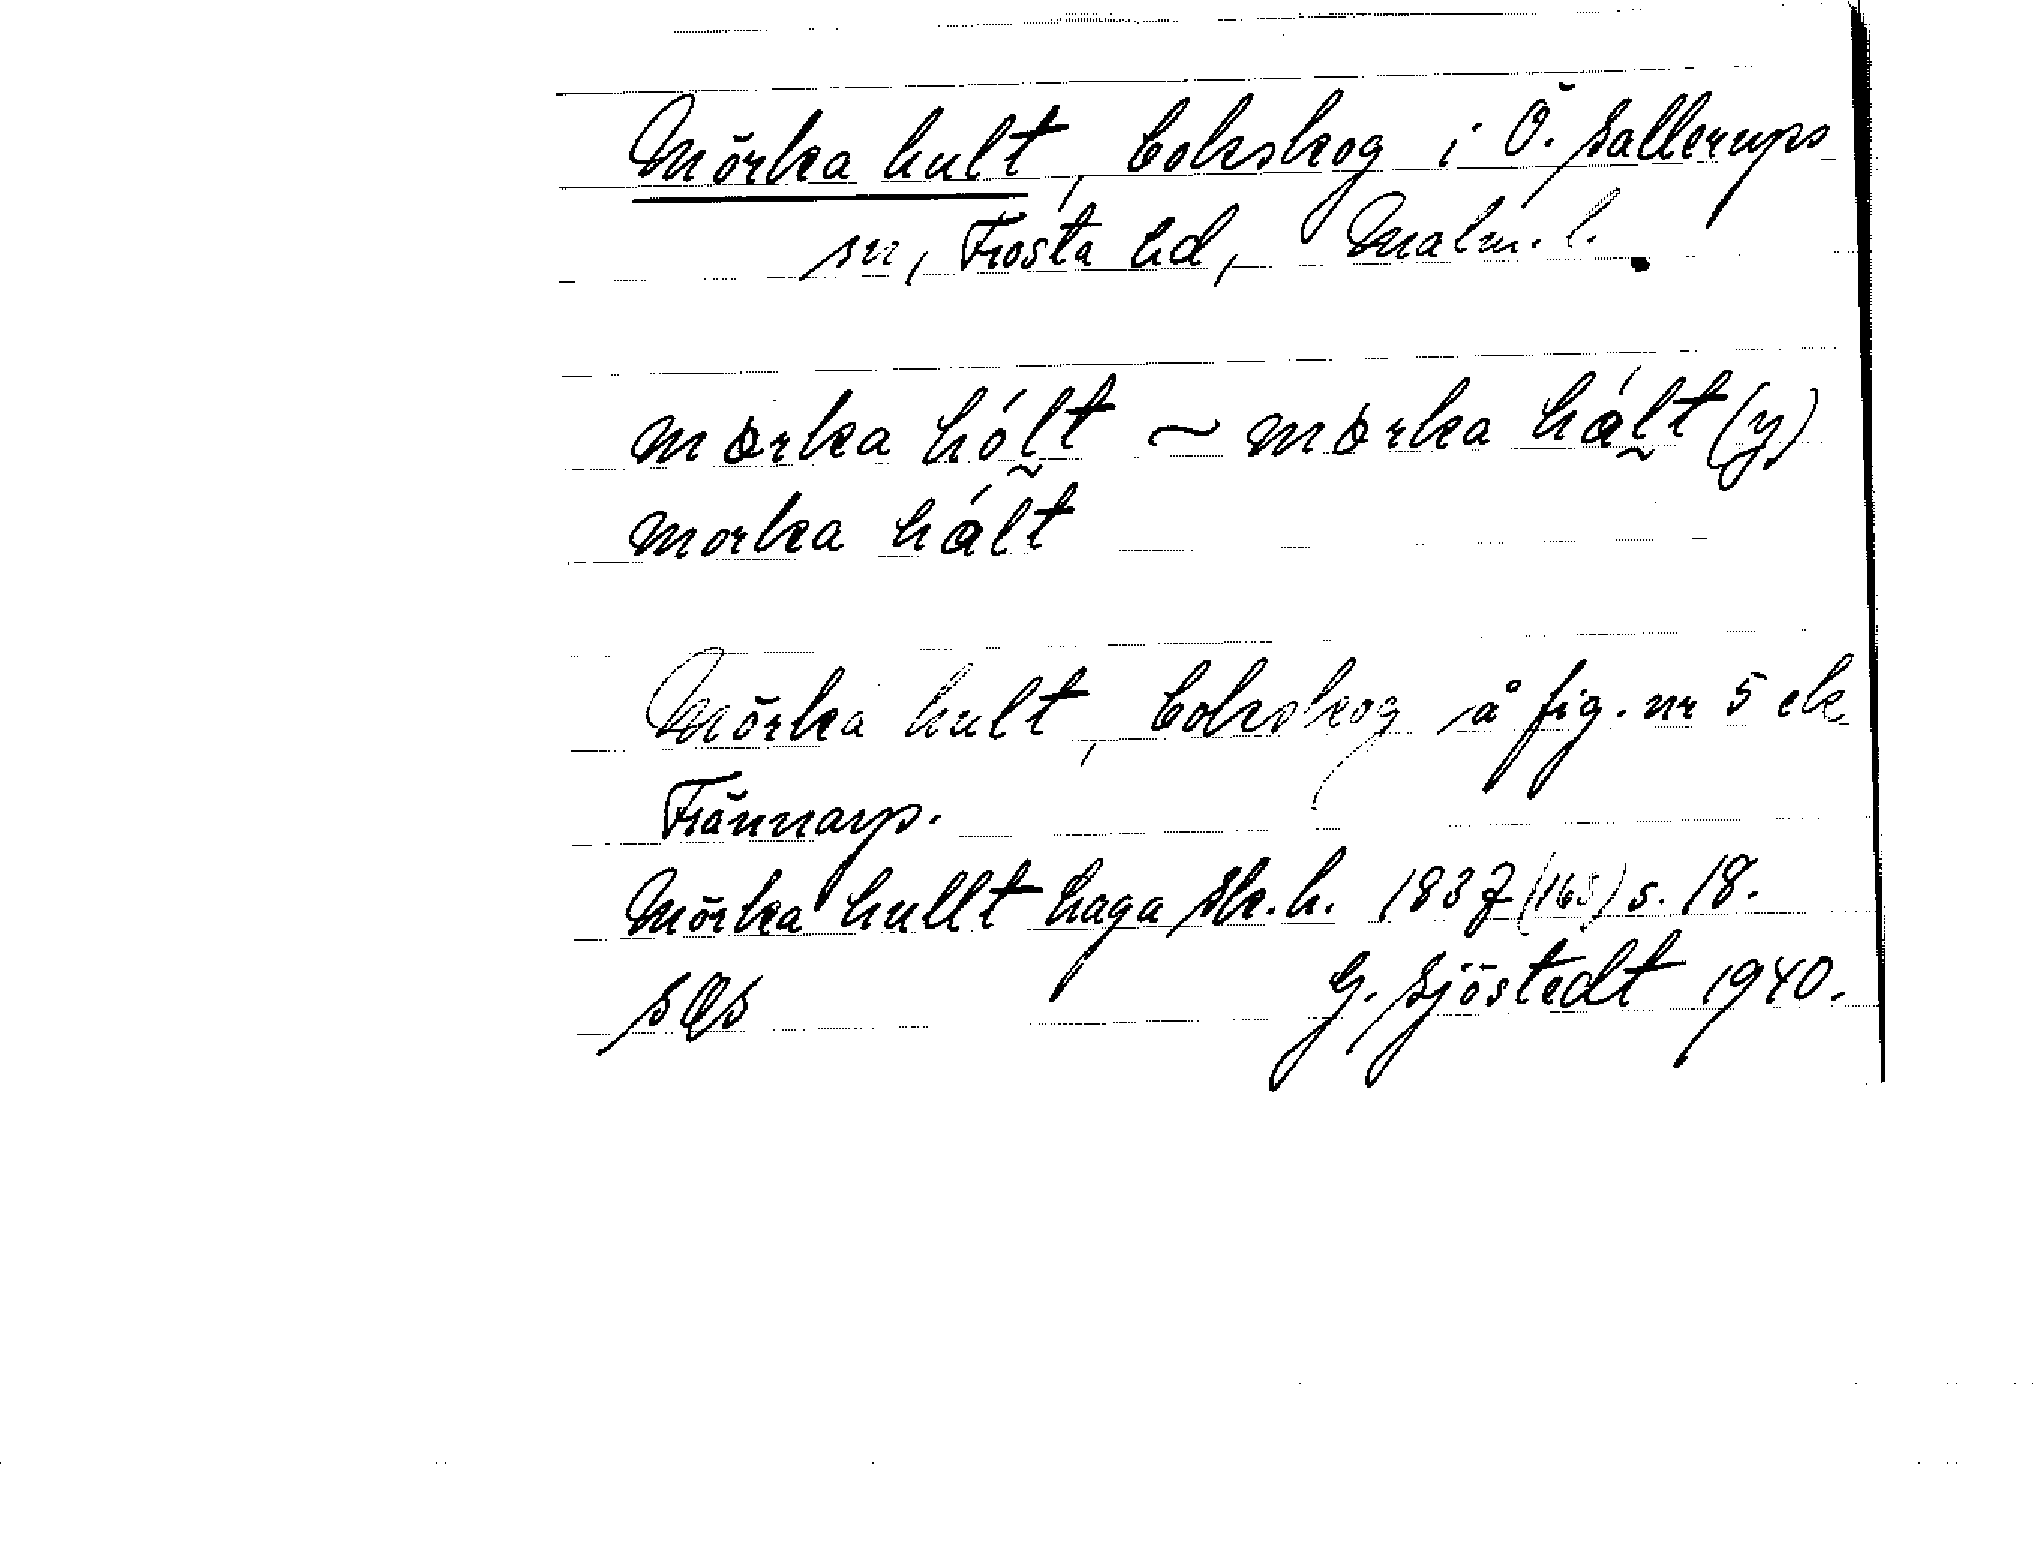 Mörka hult, bokskog i Ö. Sallerups
sn, Frosta hd, Malm. l.
mörka hólt ~ mörka hált (y)
morka hált
Mörka hult, bokskog å fig. nr 5 ek.
Frännarp.
Mörka hullt haga Sk. h. 1837 (165) s. 18.
G. Sjöstedt 1940.